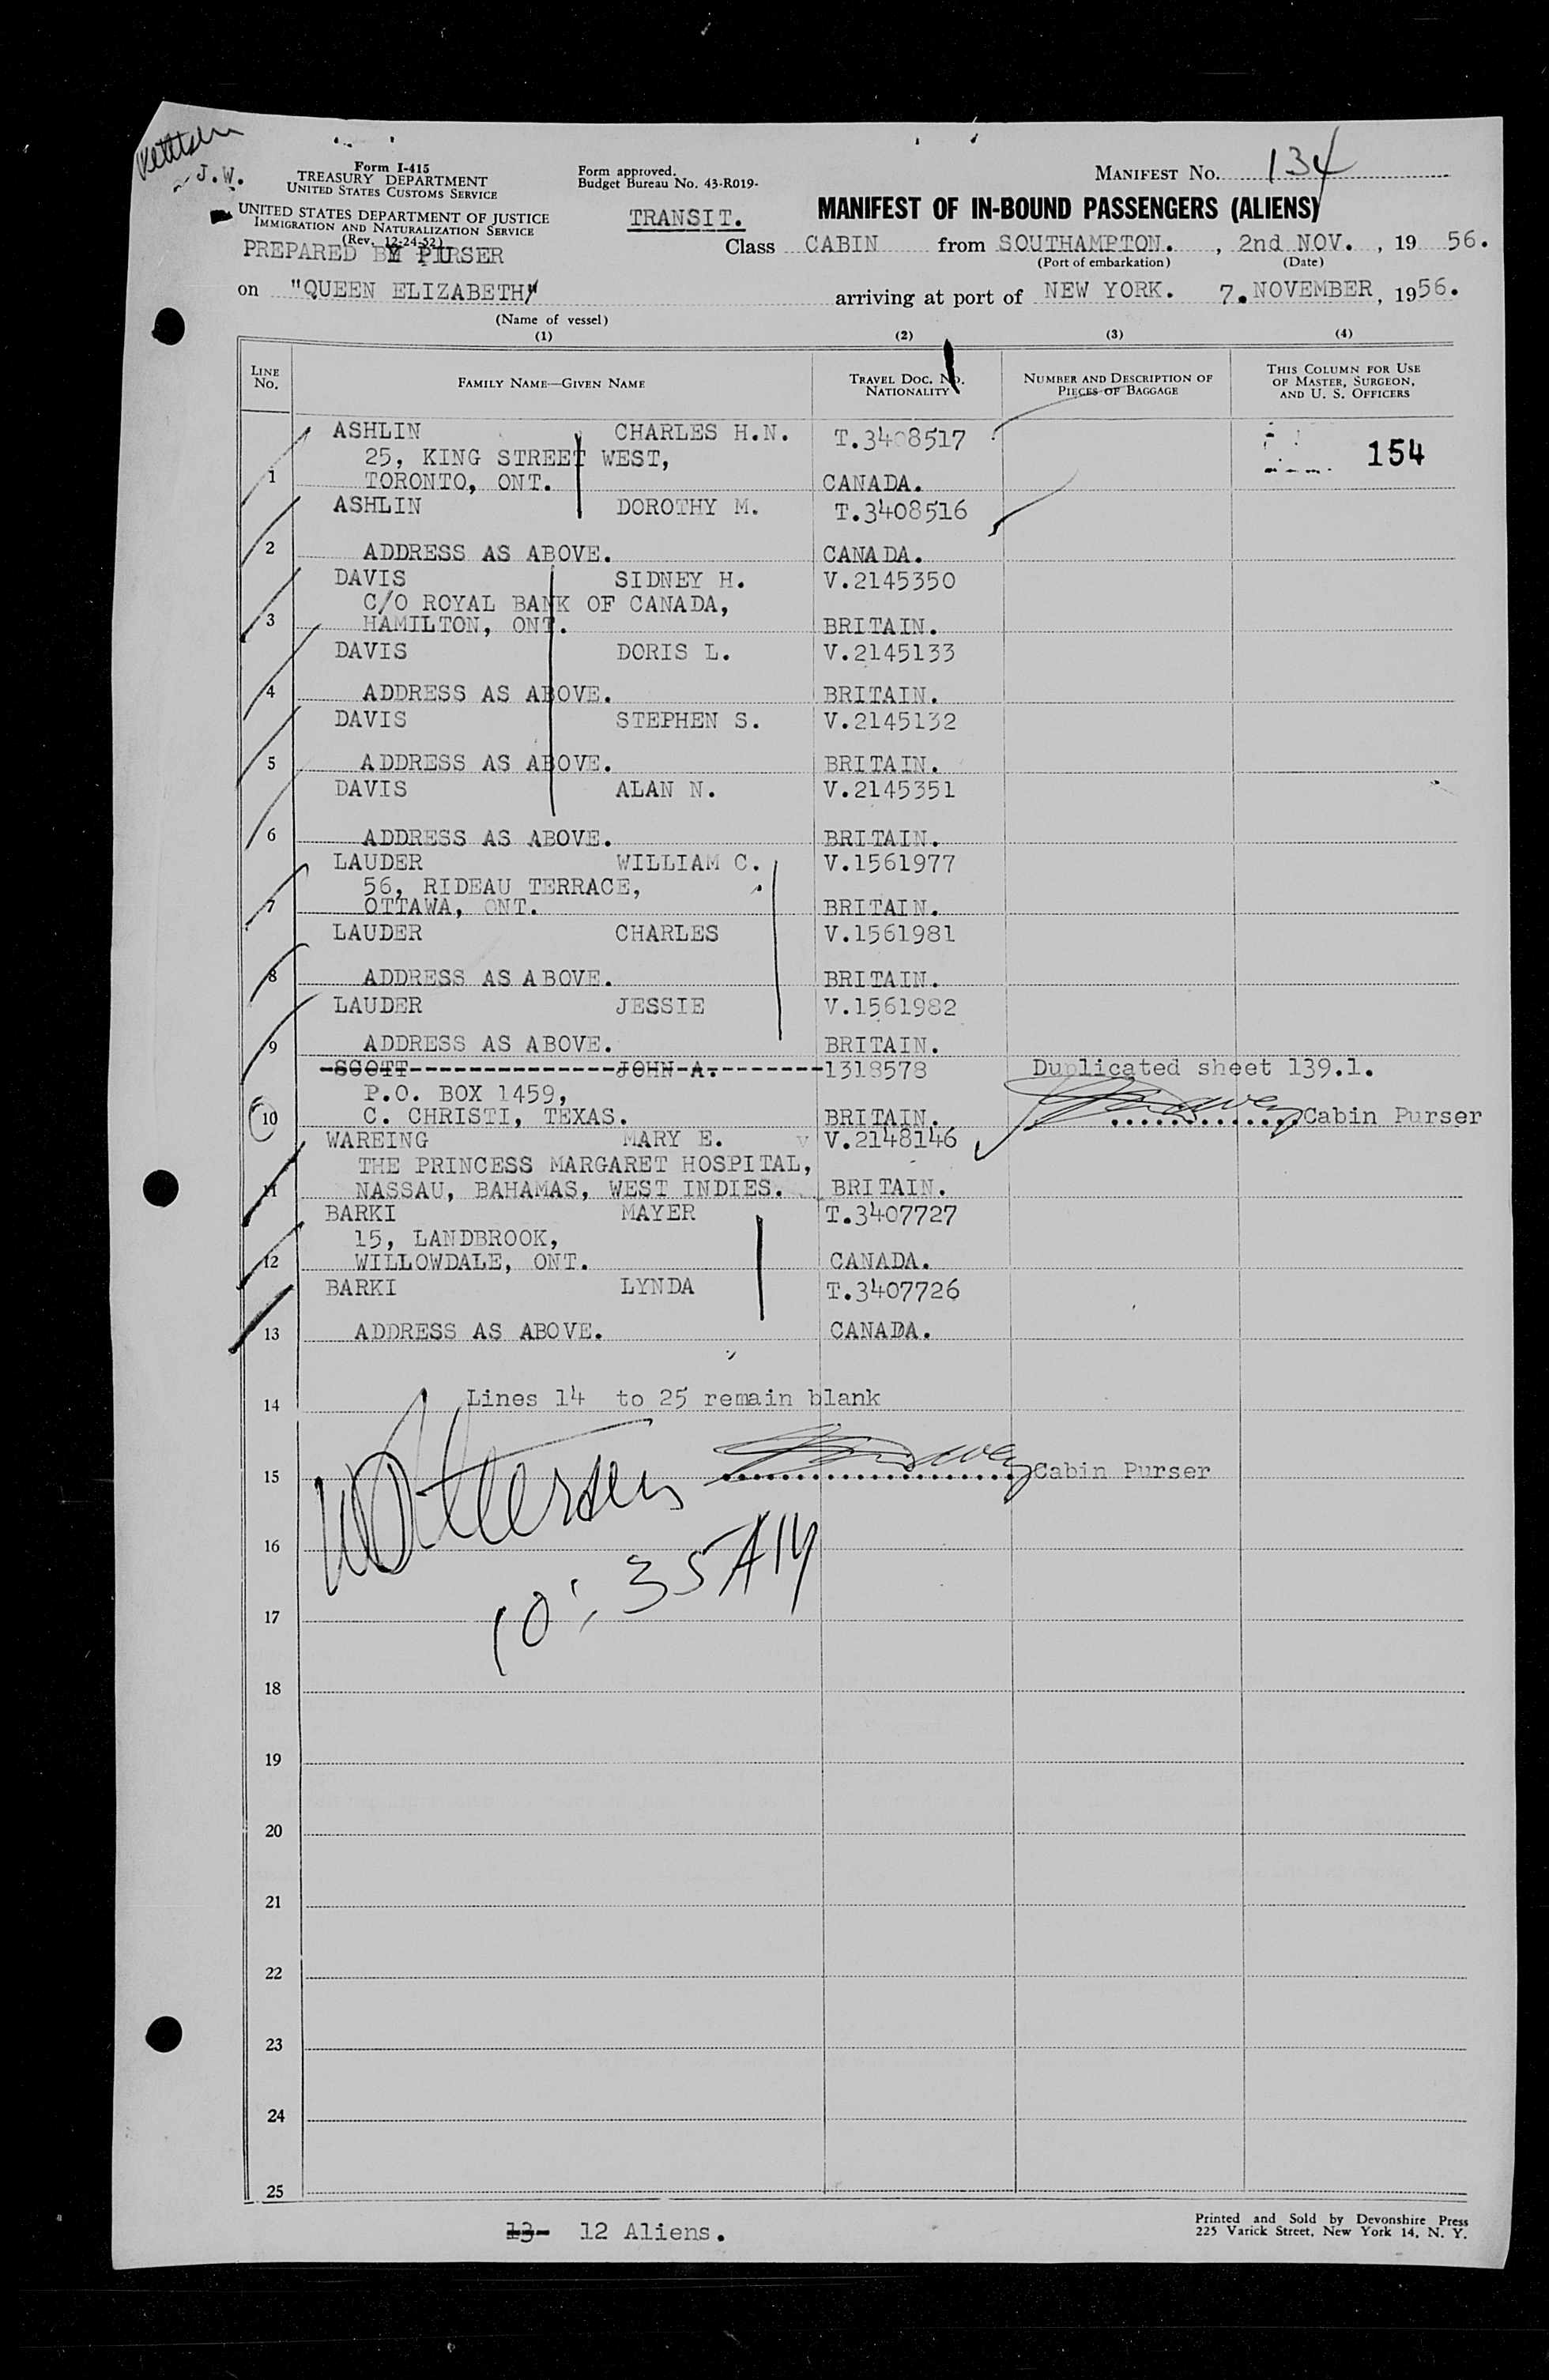 J.W.
Form I-415
TREASURY DEPARTMENT
UNITED STATES CUSTOMS SERVICE
UNITED STATES DEPARTMENT OF JUSTICE
IMMIGRATION AND NATURALIZATION SERVICE
(Rev. 12-24-52)
PREPARED BY PURSER
Form approved.
Budget Bureau No. 43-R019-
TRANSIT.
MANIFEST No. 134
MANIFEST OF IN-BOUND PASSENGERS (ALIENS)
Class CABIN from SOUTHAMPTON. , 2nd NOV. , 19 56.
(Port of embarkation) (Date)
on "QUEEN ELIZABETH" arriving at port of NEW YORK. 7. NOVEMBER, 1956.
(Name of vessel)
(1) (2) (3) (4)
LINE No. FAMILY NAME—GIVEN NAME TRAVEL DOC. No. NATIONALITY NUMBER AND DESCRIPTION OF PIECES OF BAGGAGE THIS COLUMN FOR USE OF MASTER, SURGEON, AND U. S. OFFICERS
ASHLIN CHARLES H.N. T.3408517
25, KING STREET WEST, 154
1 TORONTO, ONT. CANADA.
ASHLIN DOROTHY M. T.3408516
2 ADDRESS AS ABOVE. CANADA.
DAVIS SIDNEY H. V.2145350
C/O ROYAL BANK OF CANADA,
3 HAMILTON, ONT. BRITAIN.
DAVIS DORIS L. V.2145133
4 ADDRESS AS ABOVE. BRITAIN.
DAVIS STEPHEN S. V.2145132
5 ADDRESS AS ABOVE. BRITAIN.
DAVIS ALAN N. V.2145351
6 ADDRESS AS ABOVE. BRITAIN.
LAUDER WILLIAM C. V.1561977
56, RIDEAU TERRACE,
7 OTTAWA, ONT. BRITAIN.
LAUDER CHARLES V.1561981
8 ADDRESS AS ABOVE. BRITAIN.
LAUDER JESSIE V.1561982
9 ADDRESS AS ABOVE. BRITAIN.
SCOTT JOHN A. 1318578 Duplicated sheet 139.1.
P.O. BOX 1459,
10 C. CHRISTI, TEXAS. BRITAIN. Cabin Purser
WAREING MARY E. V V.2148146
THE PRINCESS MARGARET HOSPITAL,
11 NASSAU, BAHAMAS, WEST INDIES. BRITAIN.
BARKI MAYER T.3407727
15, LANDBROOK,
12 WILLOWDALE, ONT. CANADA.
BARKI LYNDA T.3407726
13 ADDRESS AS ABOVE. CANADA.
14 Lines 14 to 25 remain blank
15 Cabin Purser
16
10:35AM
17
18
19
20
21
22
23
24
25
13 12 Aliens.
Printed and Sold by Devonshire Press
225 Varick Street, New York 14, N. Y.